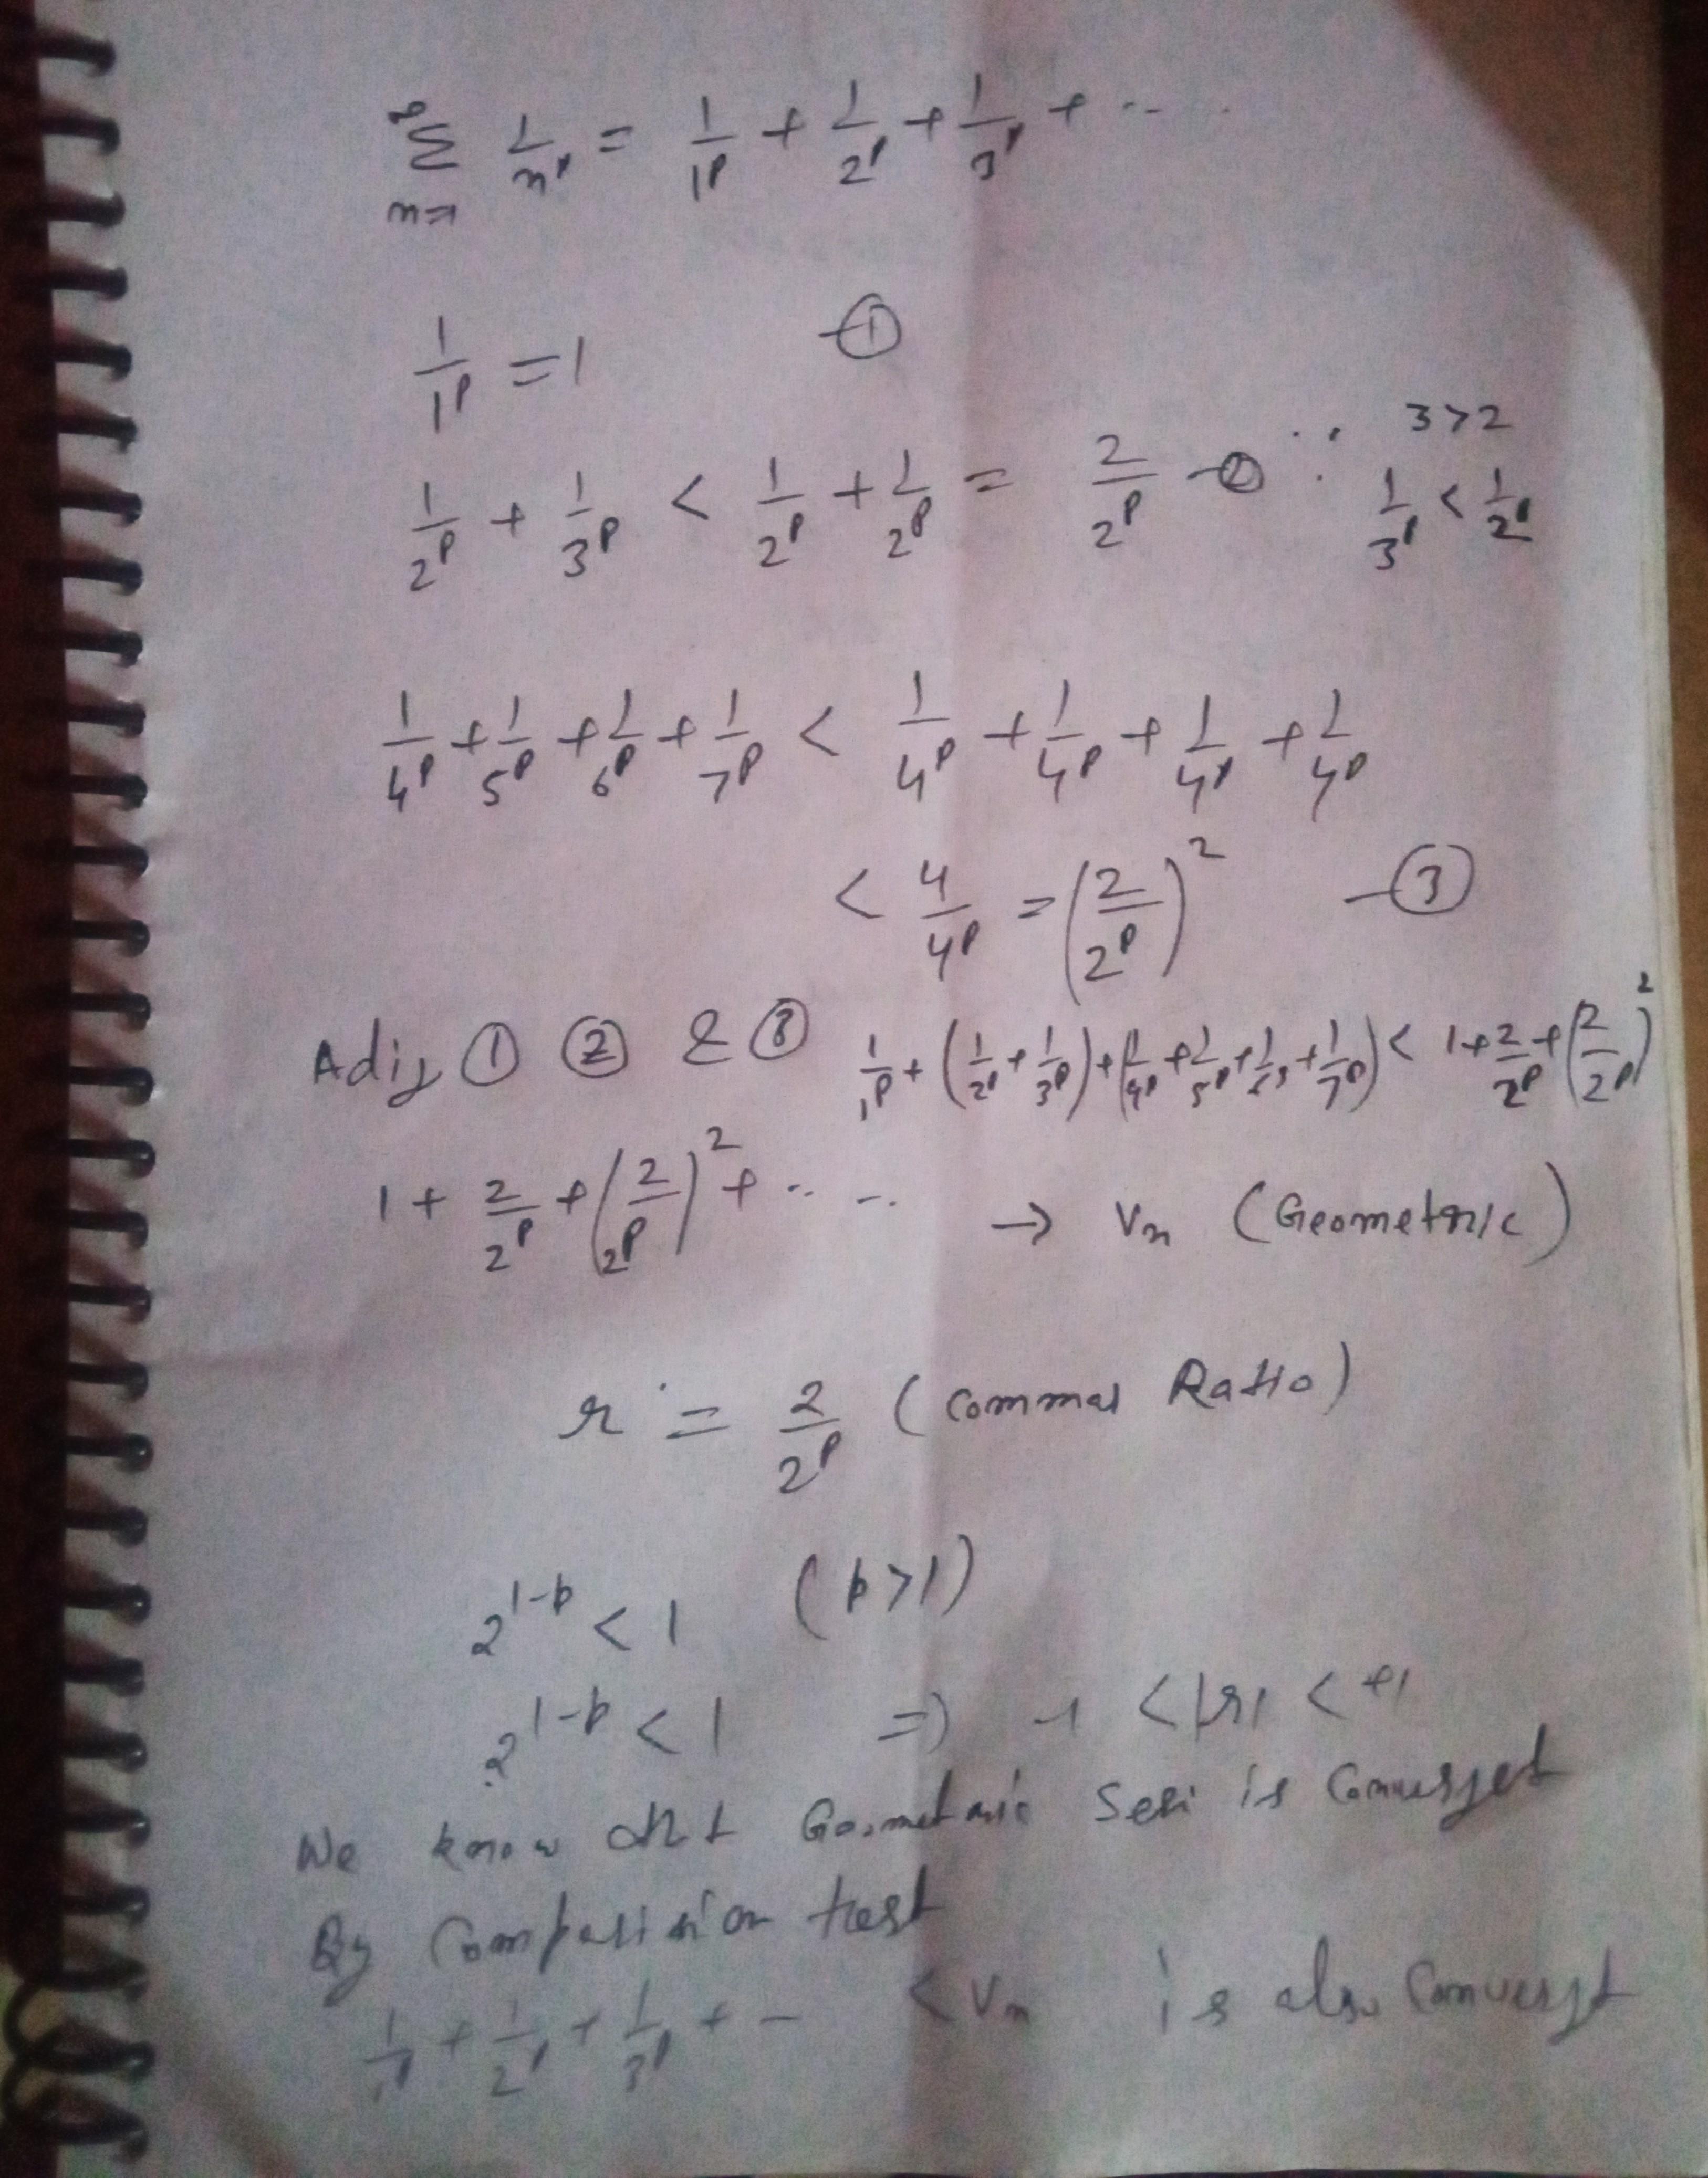 ∞Σn=1 1/n^p = 1/1^p + 1/2^p + 1/3^p + ....
1/1^p = 1 —①
1/2^p + 1/3^p < 1/2^p + 1/2^p = 2/2^p —② ∵ 3>2
1/3^p < 1/2^p
1/4^p + 1/5^p + 1/6^p + 1/7^p < 1/4^p + 1/4^p + 1/4^p + 1/4^p
< 4/4^p = (2/2^p)^2 —③
① ② & ③ 1/1^p + (1/2^p + 1/3^p) + (1/4^p + 1/5^p + 1/6^p + 1/7^p) < 1 + 2/2^p + (2/2^p)^2
1 + 2/2^p + (2/2^p)^2 + .. .. → Vn (Geometric)
r = 2/2^p (Common Ratio)
2^(1-p) < 1 (p>1)
2^(1-p) < 1 ⇒ -1 < |r| < +1
We know that Geometric Seri is Converget
By Comparision test
1/1^p + 1/2^p + 1/3^p + - < Vn is also Convergt